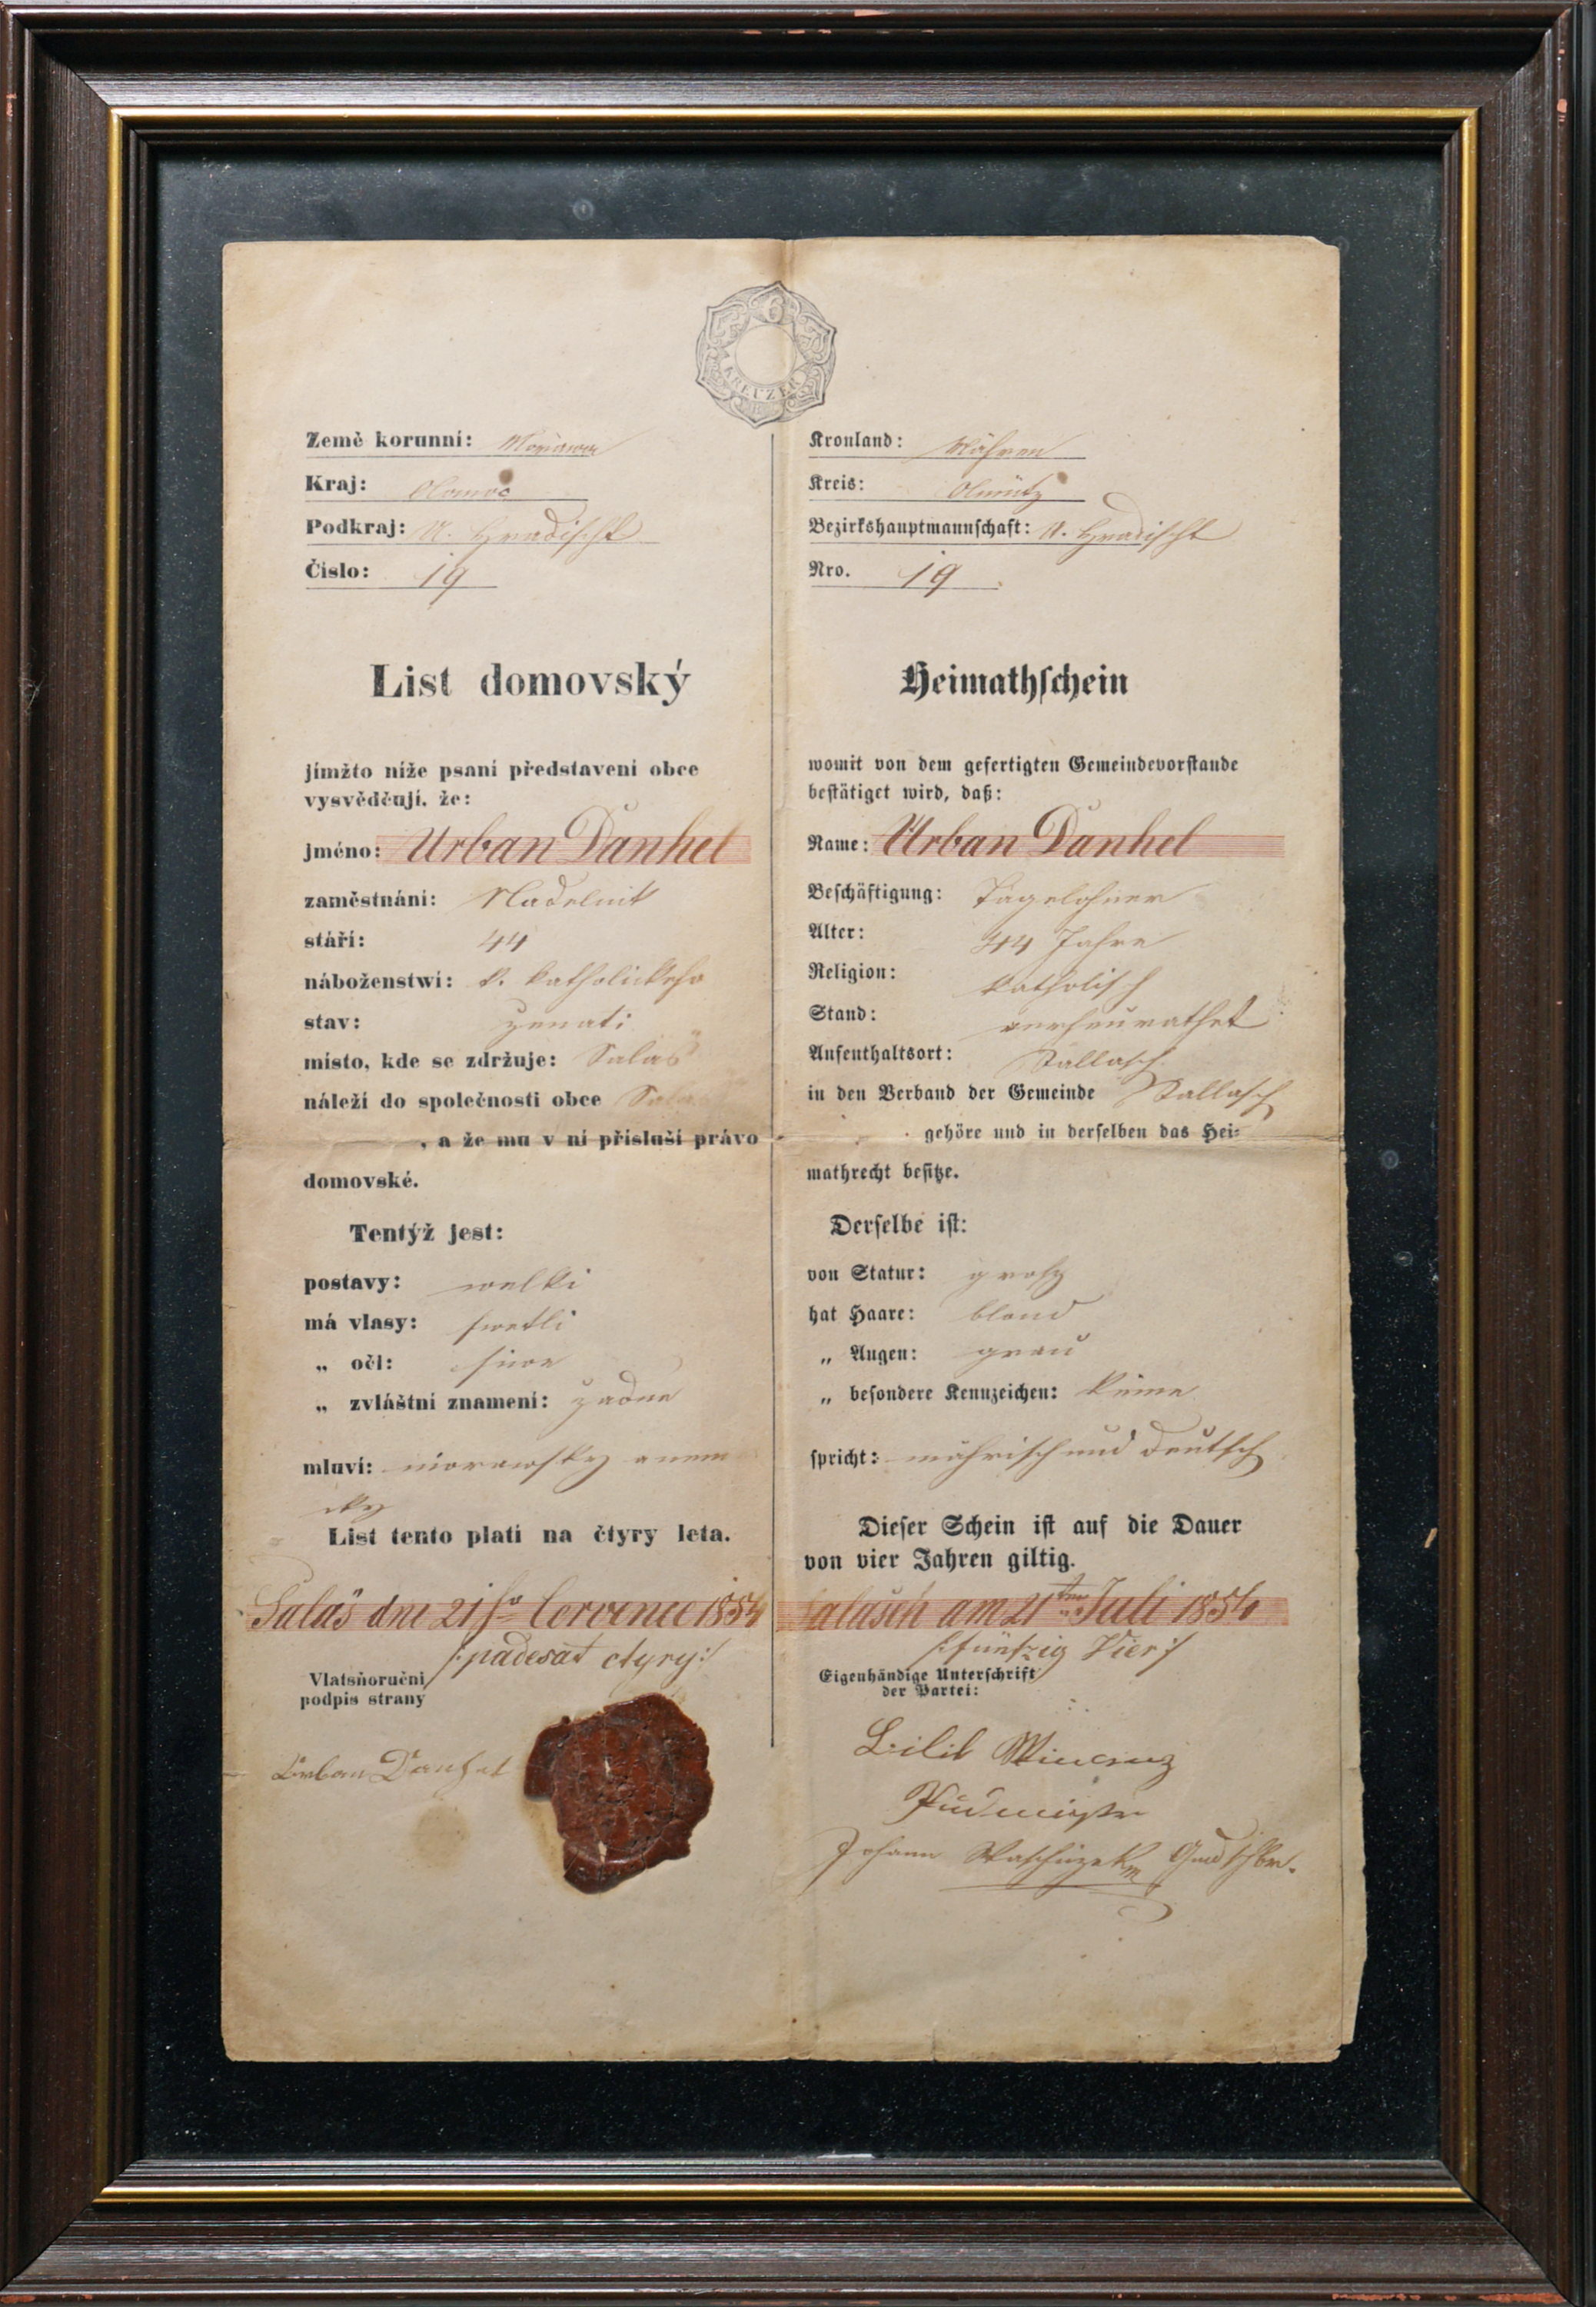 6
KREUZER
Země korunní: Morawa
Kraj: Olomoc
Podkraj: U. Hradischt
Číslo: 19
List domovský
jímžto níže psaní představení obce
vysvědčují, že:
jméno: Urban Danhel
zaměstnání: Nadelnik
stáří: 44
náboženstwí: k. katholickeho
stav: zenati
místo, kde se zdržuje: Salaš
náleží do společnosti obce Salaš
, a že mu v ní přísluší právo
domovské.
Tentýž jest:
postavy: welki
má vlasy: swetli
„ oči: siwe
„ zvláštní znamení: žadne
mluví: morawsky a nem
cky
List tento platí na čtyry leta.
Salaš dne 21ho Července 1854
/:padesat ctyry:/
Vlatsňoruční
podpis strany
Urban Danhel
Kronland: Mähren
Kreis: Olmütz
Bezirkshauptmannschaft: U. Hradischt
Nro. 19
Heimathschein
womit von dem gefertigten Gemeindevorstande
bestätiget wird, daß:
Name: Urban Danhel
Beschäftigung: Tagelohner
Alter: 44 Jahre
Religion: katholisch
Stand: verheurathet
Aufenthaltsort: Sallasch
in den Verband der Gemeinde Sallasch
gehöre und in derselben das Hei-
mathrecht besitze.
Derselbe ist:
von Statur: grosz
hat Haare: blond
„ Augen: grau
„ besondere Kennzeichen: keine
spricht: mährisch und deutsch
Dieser Schein ist auf die Dauer
von vier Jahren giltig.
Salasch am 21ten Juli 1854
/:fünfzig Vier:/
Eigenhändige Unterschrift
der Partei:
Johann